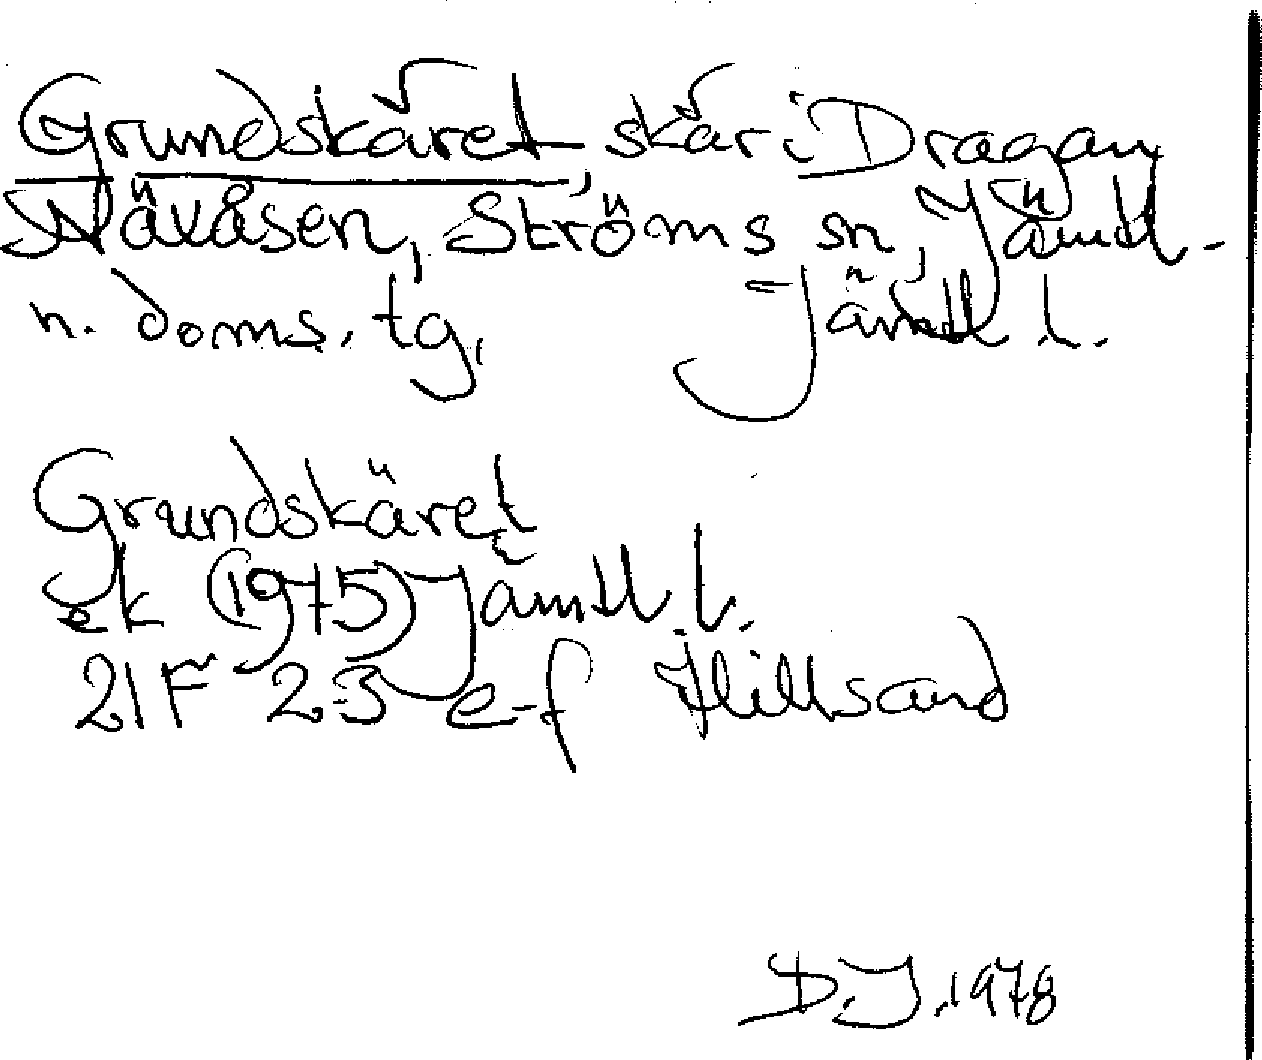 Grundskäret, skär i Dragan
Näxåsen, Ströms sn, Jämtl.
n. doms. tg, Jämtl. l.
Grundskäret
ek (1975) Jämtl. l.
21F 2-3 e-f Hillsand
D.J. 1978